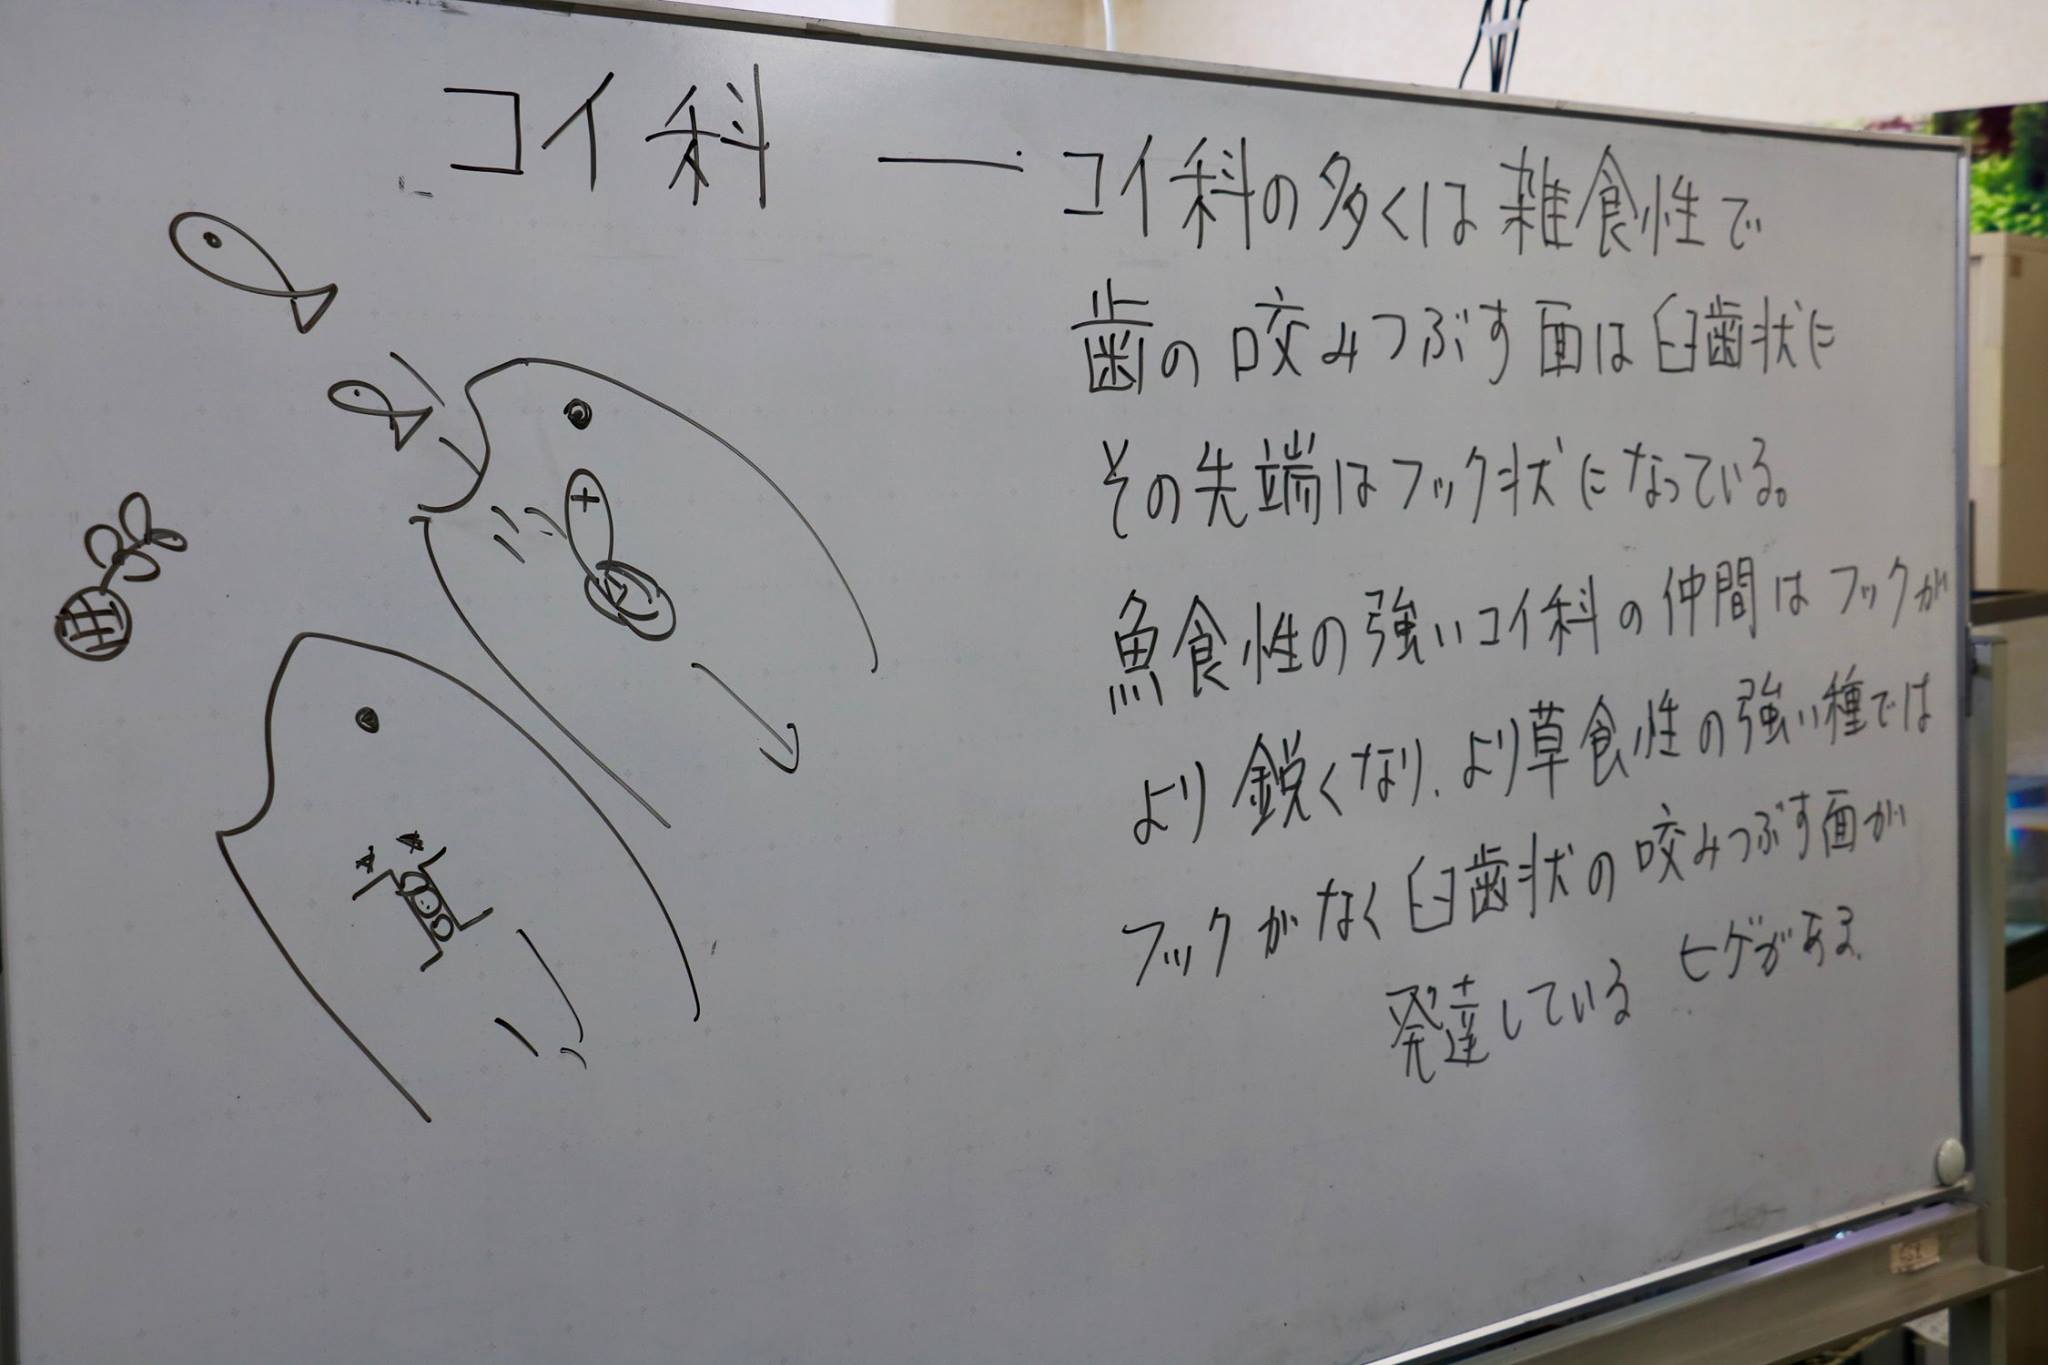 コイ科 — コイ科の多くは雑食性で
歯の咬みつぶす面は臼歯状に
その先端はフック状になっている。
魚食性の強いコイ科の仲間はフックが
より鋭くなり、より草食性の強い種では
フックがなく臼歯状の咬みつぶす面が
発達している ヒゲがある